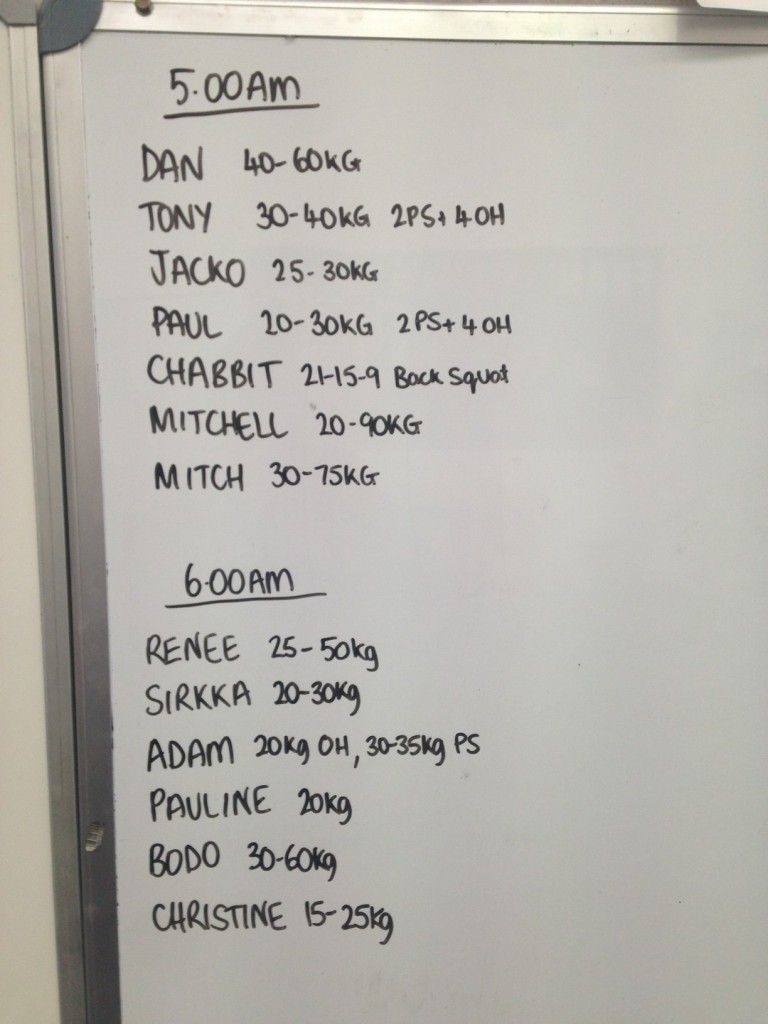 5.00AM
DAN 40-60KG
TONY 30-40KG 2PS+4OH
JACKO 25-30KG
PAUL 20-30KG 2PS+4OH
CHABBIT 21-15-9 Back Squat
MITCHELL 20-90KG
MITCH 30-75KG
6.00AM
RENEE 25-50kg
SIRKKA 20-30kg
ADAM 20kg OH, 30-35kg PS
PAULINE 20kg
BODO 30-60kg
CHRISTINE 15-25kg